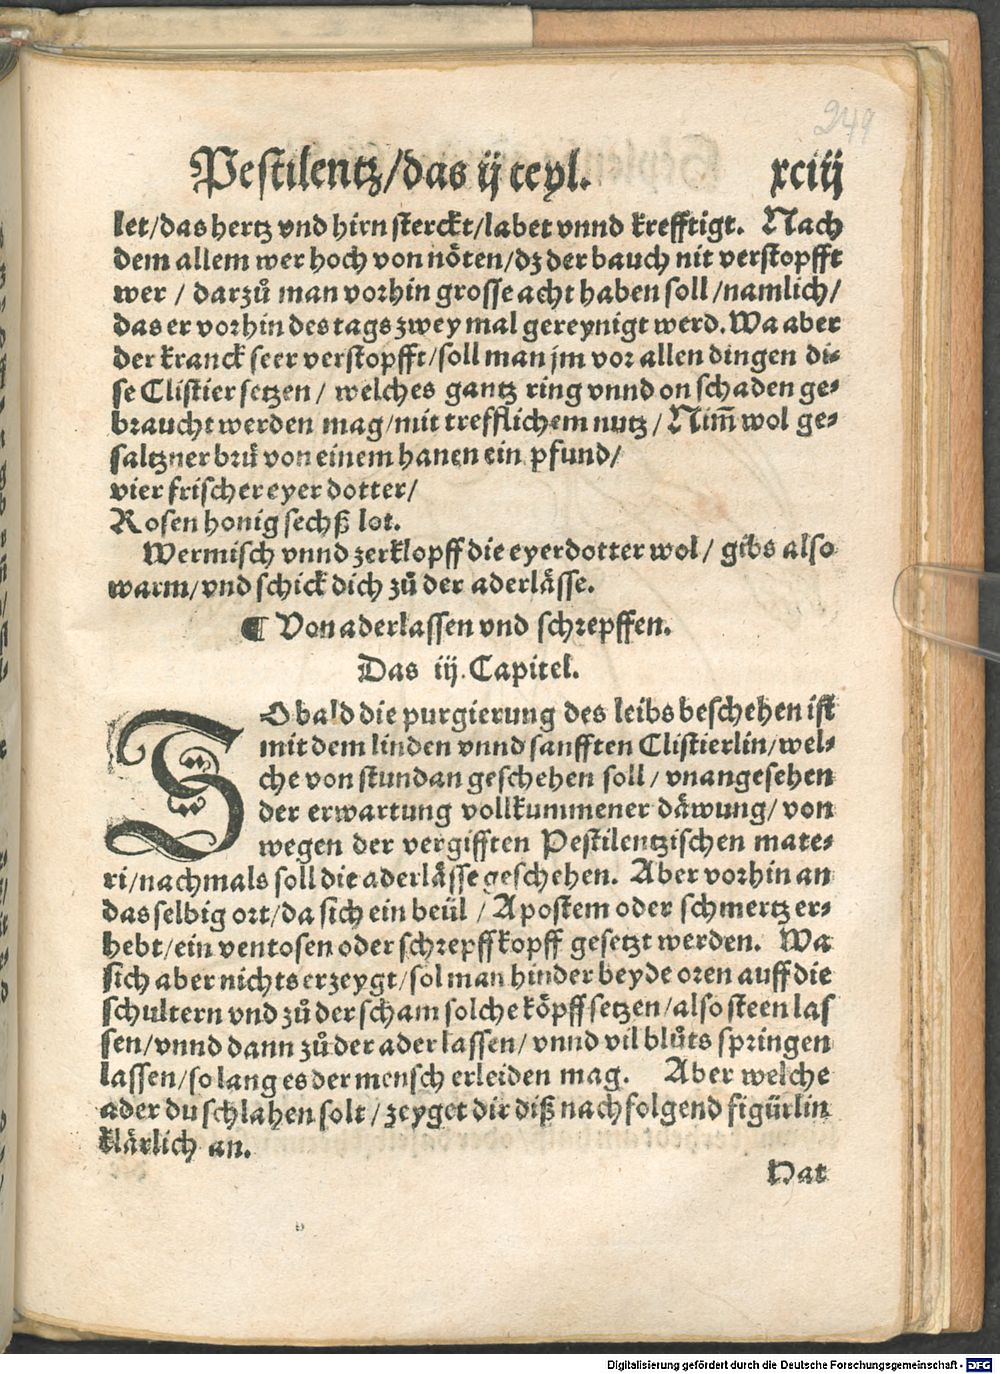 249
Pestilentz/das ij teyl. xciij
let/das hertz vnd hirn sterckt/labet vnnd krefftigt. Nach
dem allem wer hoch von nöten/dz der bauch nit verstopfft
wer / darzů man vorhin grosse acht haben soll/namlich/
das er vorhin des tags zwey mal gereynigt werd. Wa aber
der kranck seer verstopfft/soll man jm vor allen dingen di⸗
se Clistier setzen / welches gantz ring vnnd on schaden ge⸗
braucht werden mag/mit trefflichem nutz / Nim̄ wol ge⸗
saltzner brü von einem hanen ein pfund/
vier frischer eyer dotter/
Rosen honig sechß lot.
Vermisch vnnd zerklopff die eyerdotter wol/ gibs also
warm/vnd schick dich zů der aderlässe.
¶ Von aderlassen vnd schrepffen.
Das iij. Capitel.
SO bald die purgierung des leibs beschehen ist
mit dem linden vnnd sanfften Clistierlin/wel⸗
che von stund an geschehen soll / vnangesehen
der erwartung vollkummener däwung/ von
wegen der vergifften Pestilentzischen mate⸗
ri/nachmals soll die aderlässe geschehen. Aber vorhin an
das selbig ort/da sich ein beül / Apostem oder schmertz er⸗
hebt/ein ventosen oder schrepffkopff gesetzt werden. Wa
sich aber nichts erzeygt/sol man hinder beyde oren auff die
schultern vnd zů der scham solche köpff setzen/also steen las
sen/vnnd dann zů der ader lassen/ vnnd vil blůts springen
lassen/so lang es der mensch erleiden mag. Aber welche
ader du schlahen solt / zeyget dir diß nachfolgend figürlin
klärlich an.
Hat
Digitalisierung gefördert durch die Deutsche Forschungsgemeinschaft - DFG